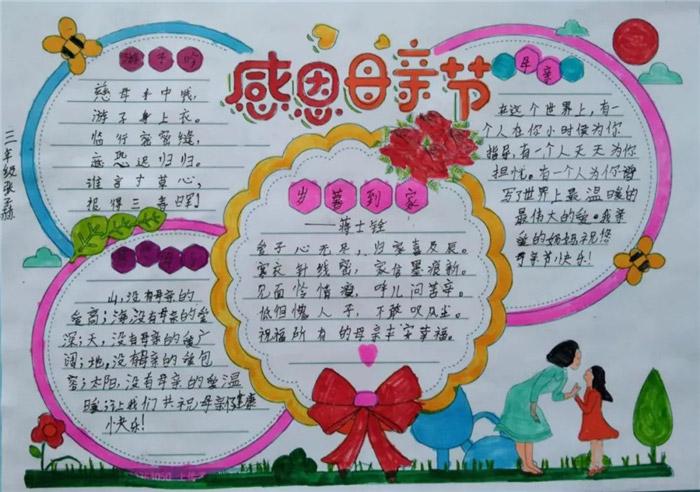 感恩母亲节
游子吟
慈母手中线，
游子身上衣。
临行密密缝，
意恐迟归归。
谁言寸草心，
报得三春晖！
母亲
在这个世界上，有一
个人在你小时候为你
指导，有一个人天天为你
担忧，有一个人为你谱
写世界上最温暖的
最伟大的爱。我亲
爱的妈妈祝您
母亲节快乐！
岁暮到家
——蒋士铨
爱子心无尽，归家喜及辰。
寒衣针线密，家信墨痕新。
见面怜清瘦，呼儿问苦辛。
低但愧人子，不敢叹风尘。
祝福所有的母亲幸福。
山，没有母亲的
爱高；海，没有母亲的爱
深；天，没有母亲的爱广
阔；地，没有母亲的爱包
容；太阳，没有母亲的爱温
暖；让我们共祝母亲健康
快乐！
三年级张子赫